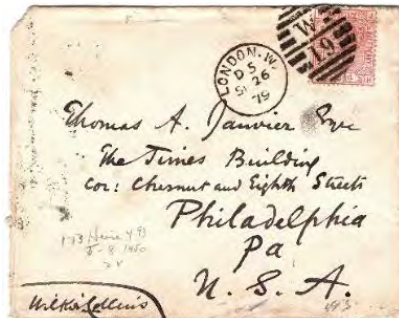 LONDON.W.
D 5
SP 26
79
W
19
Thomas A. Janvier Esqre
The Times Building
cor: Chesnut and Eighth Streets
Philadelphia
Pa
U. S. A.
Wilkie Collins